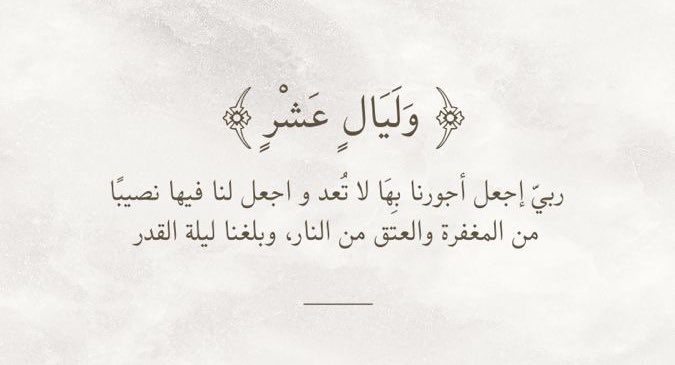 ﴿ وَلَيَالٍ عَشْرٍ ﴾
ربيّ إجعل أجورنا بِهَا لا تُعد و اجعل لنا فيها نصيبًا
من المغفرة والعتق من النار، وبلغنا ليلة القدر